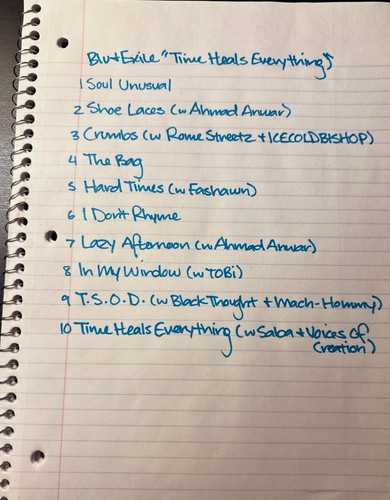 Blu + Exile "Time Heals Everything"
1 Soul Unusual
2 Shoe Laces (w Ahmad Anwar)
3 Crumbs (w Rome Streetz + ICECOLDBISHOP)
4 The Bag
5 Hard Times (w Fashawn)
6 I Don't Rhyme
7 Lazy Afternoon (w Ahmad Anwar)
8 In My Window (w TOBi)
9 T.S.O.D. (w Black Thought + Mach-Hommy)
10 Time Heals Everything (w Saba + Voices Of
Creation)